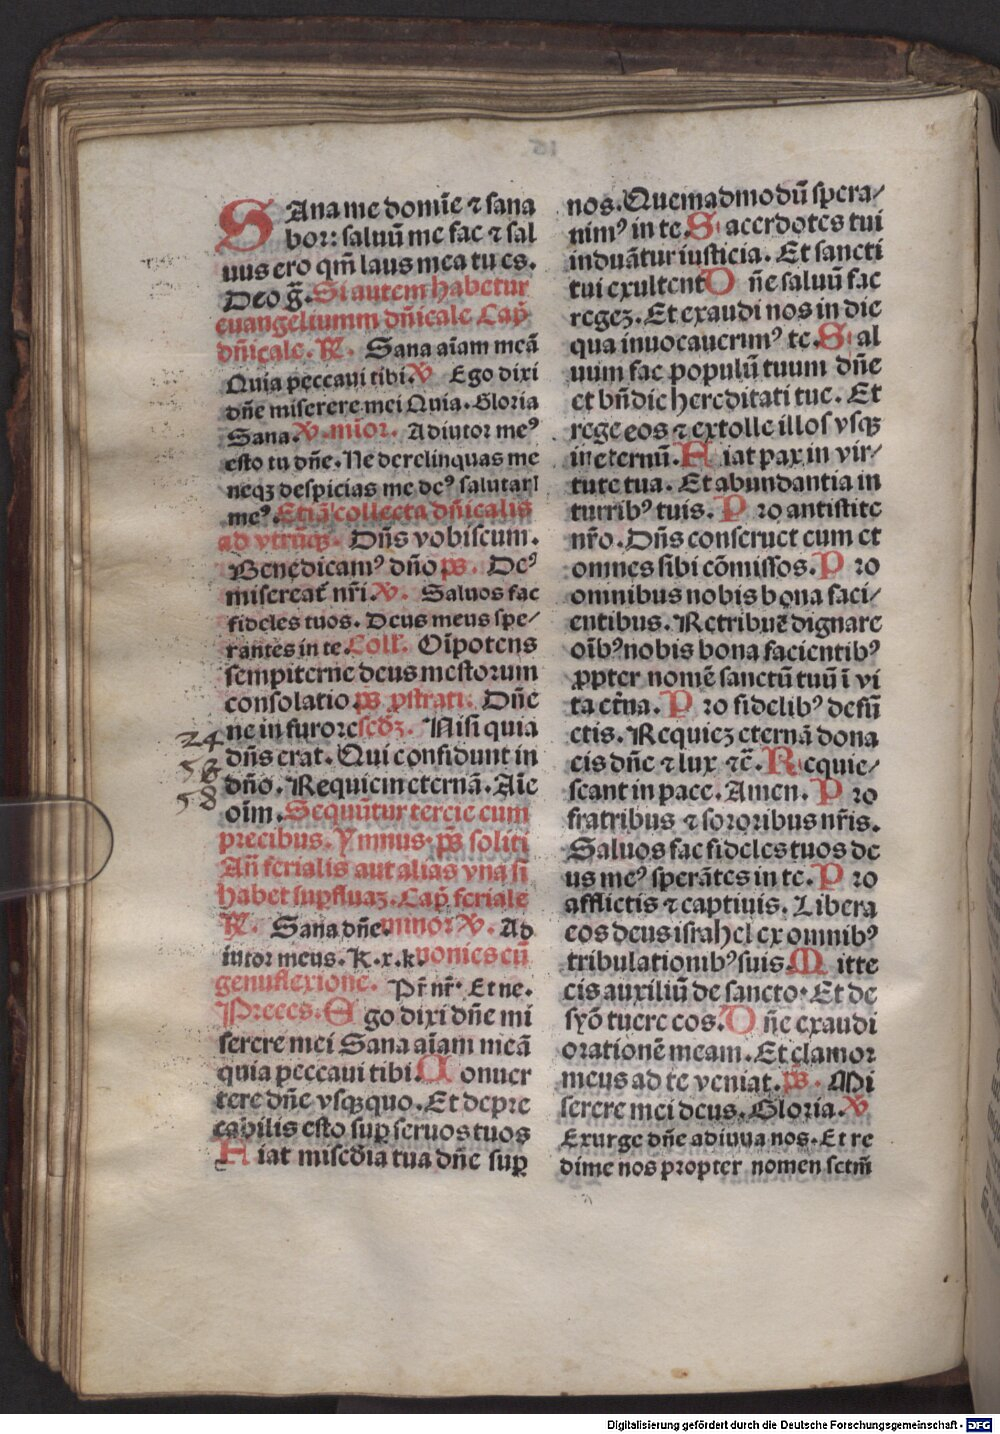 SAna me domīe ⁊ sana
bor: saluū me fac ⁊ sal
uus ero qm̄ laus mea tu es.
Deo g̅. Si autem habetur
euangeliumm dn̄icale Cap̄
dn̄icale. R̄. Sana aīam meā
Quia peccaui tibi. V̄ Ego dixi
dn̄e miserere mei Quia. Gloria
Sana. V̄. mīor. Adiutor meꝰ
esto tu dn̄e. Ne derelinquas me
neqꝫ despicias me deꝰ salutarI
meꝰ. Etiā collecta dn̄icalis
ad vtrūqꝫ. Dn̄s vobiscum.
Benedicamꝰ dn̄o ps̄. Deꝰ
misereat̄ nr̄i. V̄. Saluos fac
fideles tuos. Deus meus spe/
rantes in te. Coll̄. Oīpotens
sempiterne deus mestorum
consolatio ps̄ ꝓstrati. Dn̄e
ne in furore sedꝫ. Nisi quia
dn̄s erat. Qui confidunt in
dn̄o. Requiem eternā. Aīe
oīm. Sequūtur tercie cum
precibus. Ymnus. ps̄ soliti
An̄ ferialis aut alias vna si
habet suꝑfluaꝫ. Cap̄ feriale
R̄. Sana dn̄e. minor V̄. Ad
iutor meus. K. x. k. nonies cū
genuflexione. Pr̄ nr̄. Et ne.
Preces. Ego dixi dn̄e mi
serere mei Sana aīam meā
quia peccaui tibi. Conuer
tere dn̄e vsqꝫquo. Et depre
cabilis esto suꝑ seruos tuos
Fiat misc̄dia tua dn̄e suꝑ
24
58
58
nos. Quemadmodū spera/
nimꝰ in te. Sacerdotes tui
induātur iusticia. Et sancti
tui exultent Dn̄e saluū fac
regeꝫ. Et exaudi nos in die
qua inuocauerimꝰ te. Sal
uum fac populū tuum dn̄e
et bn̄dic hereditati tue. Et
rege eos ⁊ extolle illos vsqꝫ
in eternū. Fiat pax in vir/
tute tua. Et abundantia in
turribꝰ tuis. Pro antistite
nr̄o. Dn̄s conseruet eum et
omnes sibi cōmissos. Pro
omnibus nobis bona faci/
entibus. Retribuē dignare
oībꝰ nobis bona facientibꝰ
ꝓpter nomē sanctū tuū ī vi
ta et̄na. Pro fidelibꝰ defū
ctis. Requieꝫ eternā dona
eis dn̄e ⁊ lux ⁊c̄. Requie/
scant in pace. Amen. Pro
fratribus ⁊ sororibus nr̄is.
Saluos fac fideles tuos de
us meꝰ sperātes in te. Pro
afflictis ⁊ captiuis. Libera
eos deus israhel ex omnibꝰ
tribulationibꝰ suis. Mitte
eis auxiliū de sancto. Et de
syō tuere eos. Dn̄e exaudi
orationē meam. Et clamor
meus ad te veniat. ps̄. Mi
serere mei deus. Gloria. V̄
Exurge dn̄e adiuua nos. Et re
dime nos propter nomen sctm̄
Digitalisierung gefördert durch die Deutsche Forschungsgemeinschaft - DFG